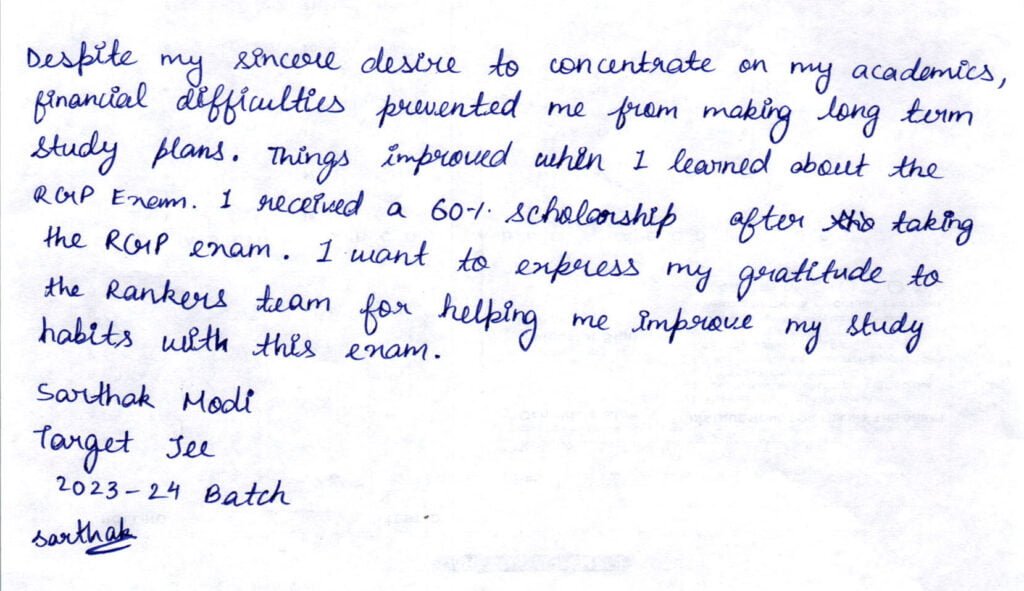 Despite my sincere desire to concentrate on my academics,
financial difficulties prevented me from making long term
study plans. Things improved when I learned about the
RGIP Exam. I received a 60% scholarship after taking
the RGIP exam. I want to express my gratitude to
the Rankers team for helping me improve my study
habits with this exam.
Sarthak Modi
Target Jee
2023-24 Batch
Sarthak